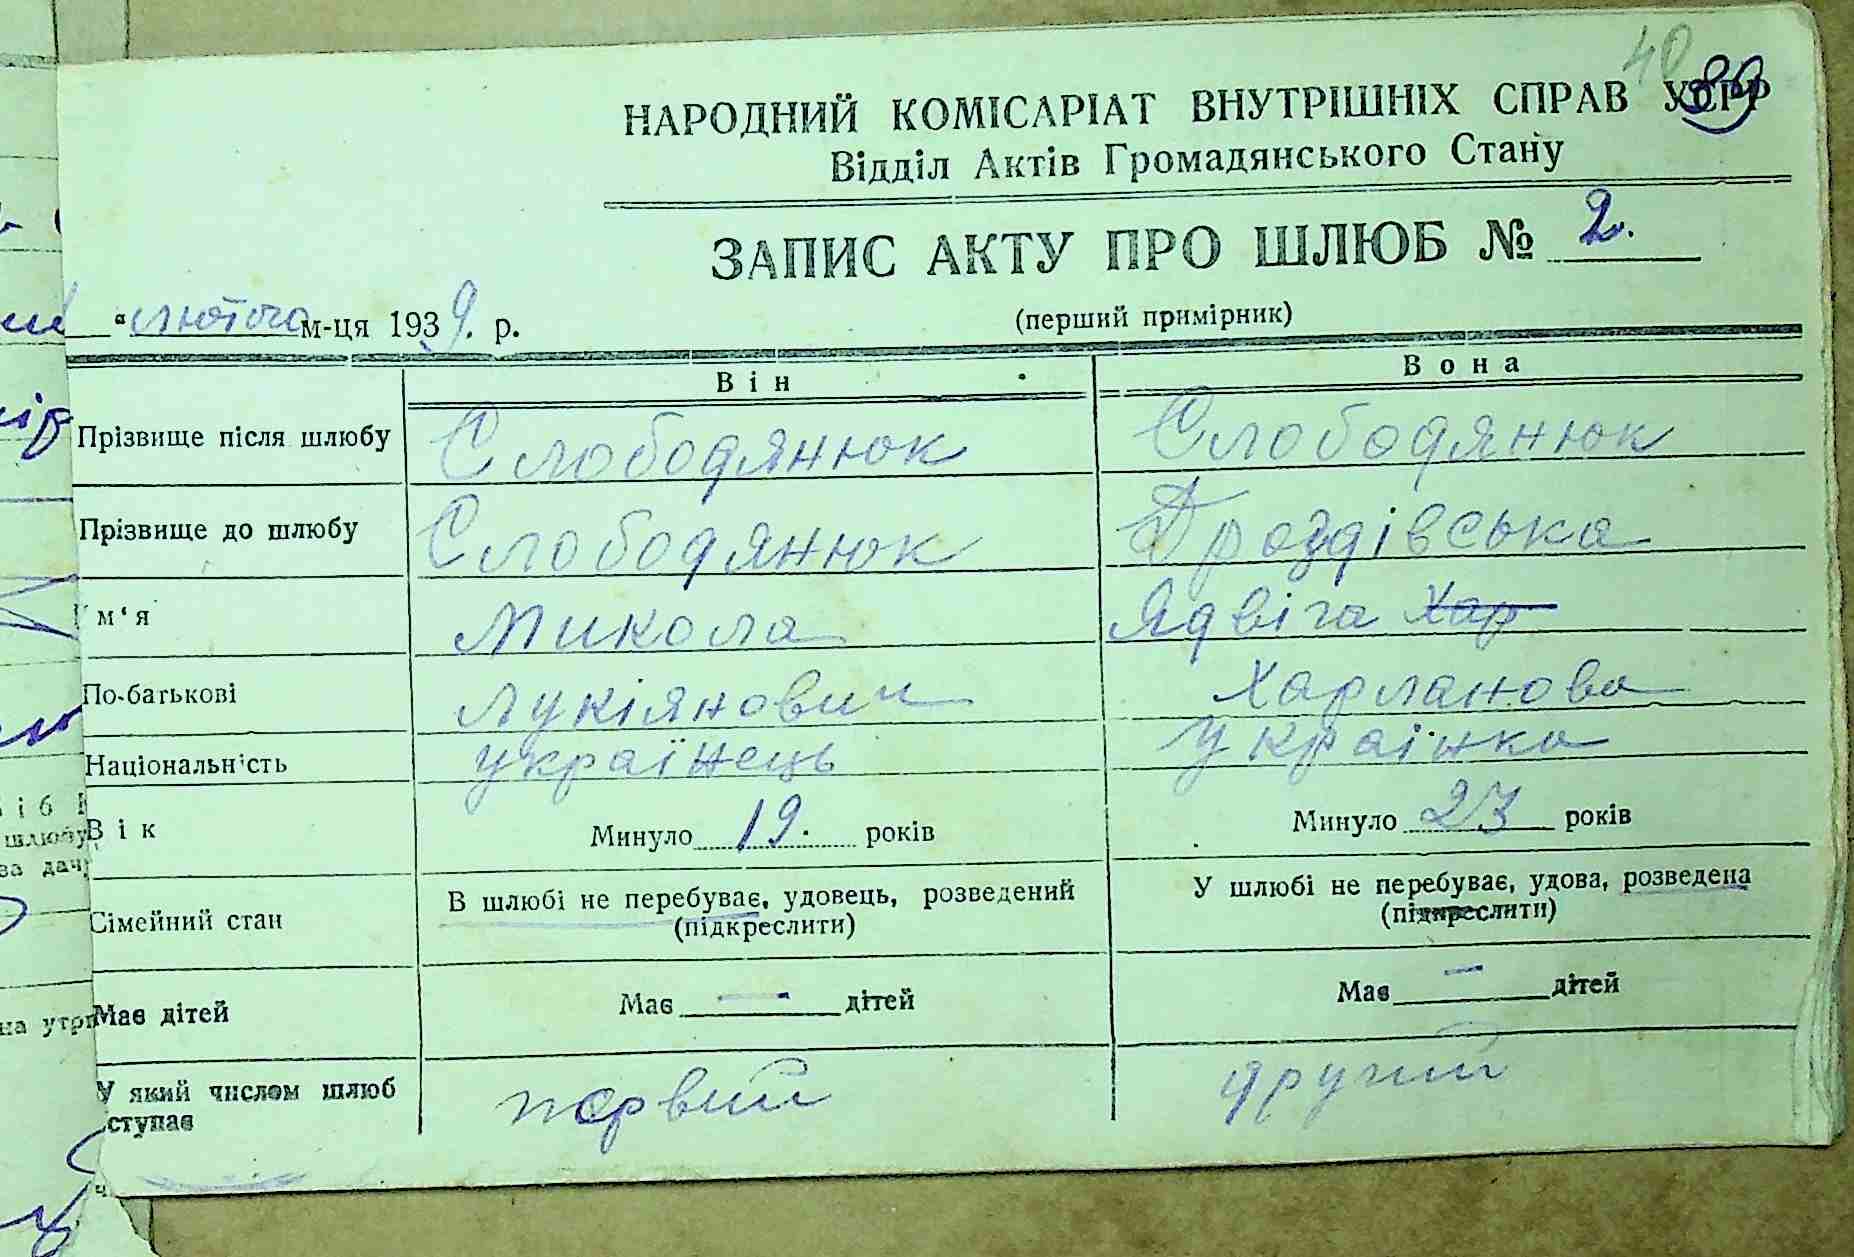 40 39
НАРОДНИЙ КОМІСАРІАТ ВНУТРІШНІХ СПРАВ УСРР
Відділ Актів Громадянського Стану
ЗАПИС АКТУ ПРО ШЛЮБ № 2.
(перший примірник)
“ лютого м-ця 1939. р.
Він Вона
Прізвище після шлюбу Слободянюк Слободянюк
Прізвище до шлюбу Слободянюк Дроздівська
м‘я Микола Ядвіга Хар
По-батькові Лукіянович Харланова
Національність українець українка
Вік Минуло 19. років Минуло 23 років
Сімейний стан В шлюбі не перебуває, удовець, розведений У шлюбі не перебуває, удова, розведена
(підкреслити) (підкреслити)
Має дітей Має — дітей Має — дітей
У який числом шлюб первий другий
ступає